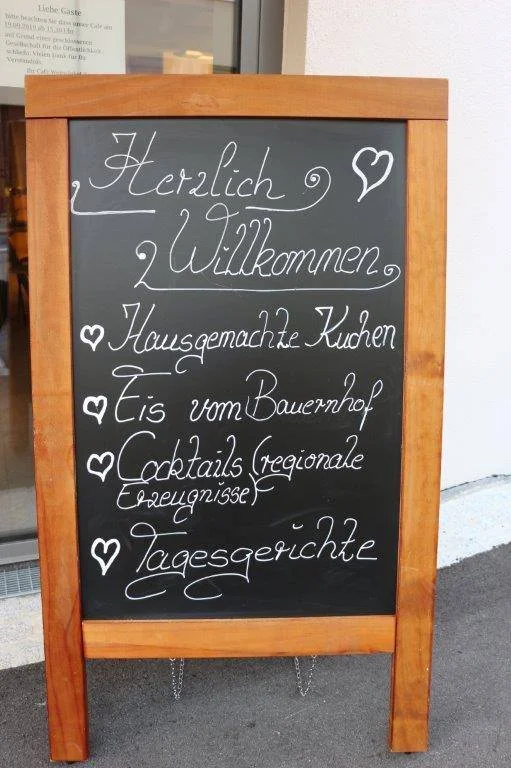 Liebe Gäste
bitte beachten Sie dass unser Cafe am
19.09.2019 ab 15.30 Uhr
auf Grund einer geschlossenen
Gesellschaft für die Öffentlichkeit
schließt. Vielen Dank für Ihr
Verständnis.
Ihr Café
Herzlich
Willkommen
Hausgemachte Kuchen
Eis vom Bauernhof
Cocktails (regionale
Erzeugnisse)
Tagesgerichte